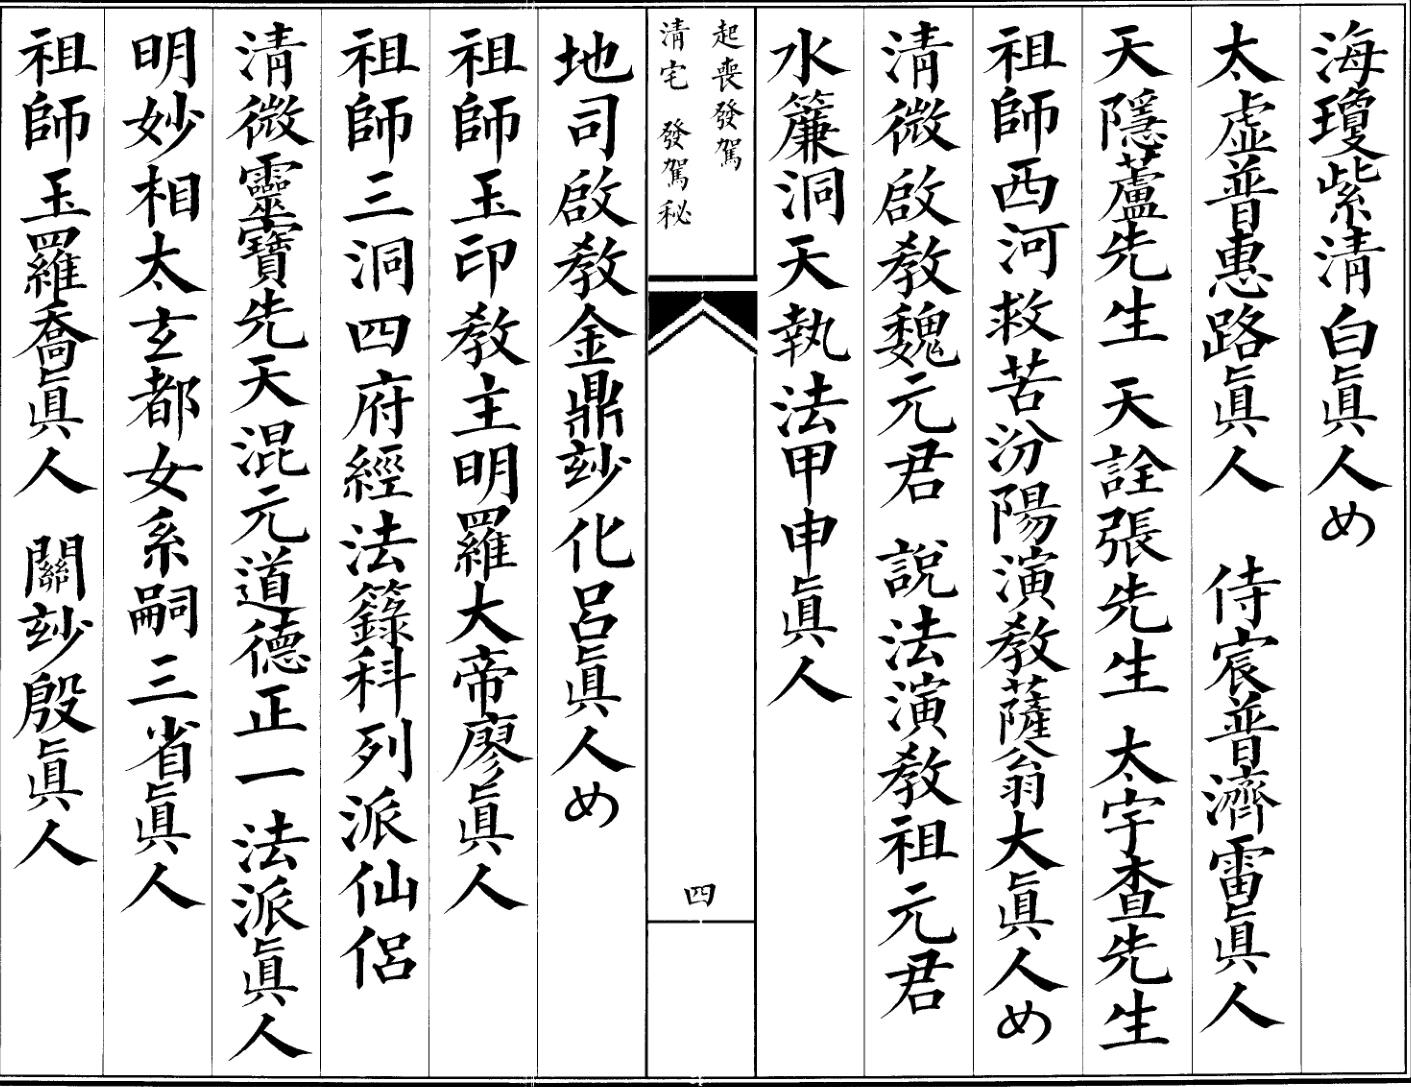 海瓊紫清白眞人め
太虛普惠路眞人　侍宸普濟雷眞人
天隱蘆先生　天詮張先生　太宇査先生
祖師西河救苦汾陽演教薩翁大眞人め
清微啟教魏元君　說法演教祖元君
水簾洞天執法甲申眞人
起喪發駕
清宅　發駕秘
四
地司啟教金鼎玅化呂眞人め
祖師玉印教主明羅大帝廖眞人
祖師三洞四府經法籙科列派仙侶
清微靈寶先天混元道德正一法派眞人
明妙相太玄都女系嗣三省眞人
祖師玉羅喬眞人　關玅殷眞人